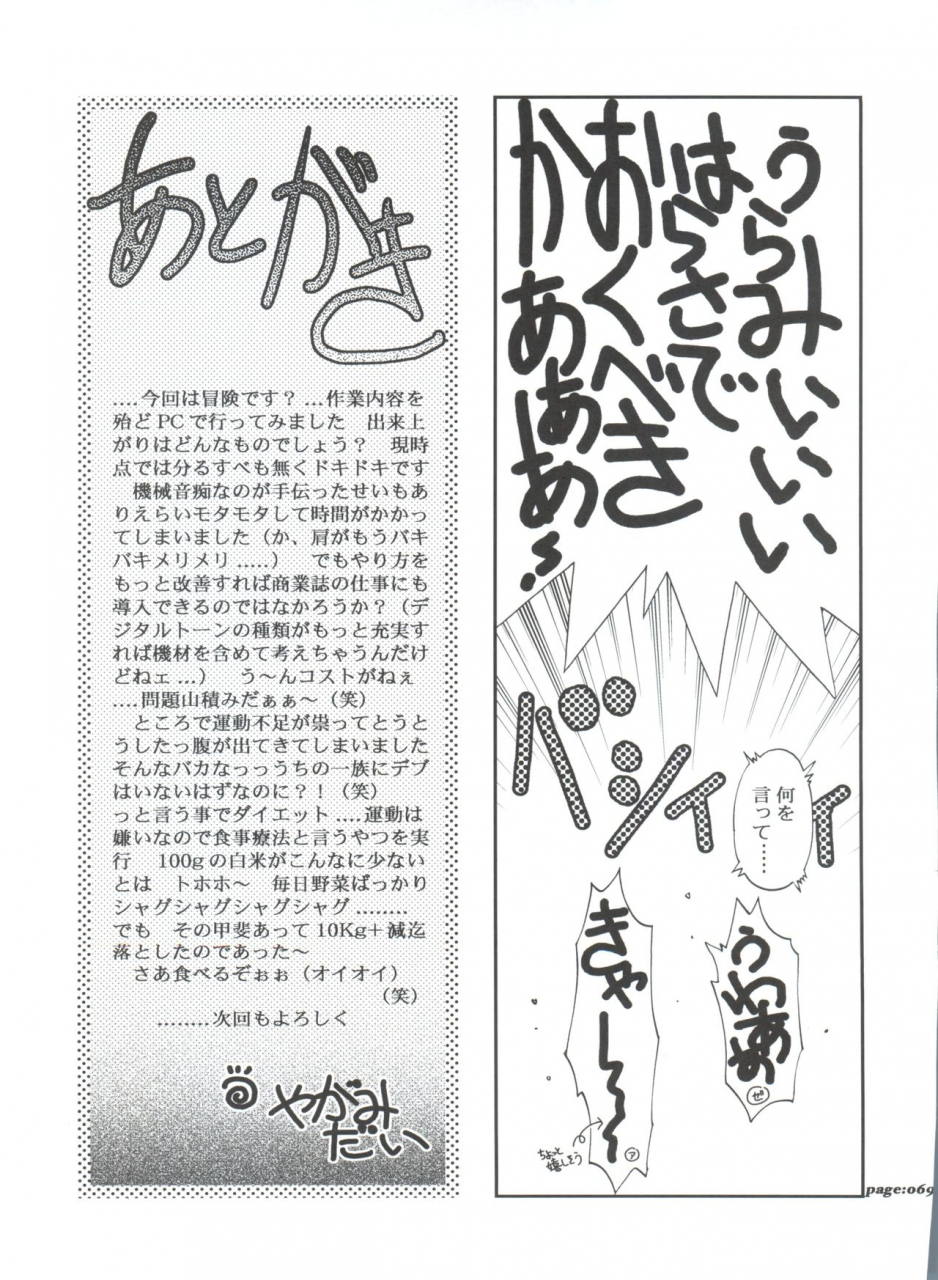 うらみぃいい
はらさで
おくべき
かあぁあ〜
バシィィ
何を
言って……
うわああ
ゼ
きゃー〜〜
ア
ちょっと
嬉しそう
あとがき
‥‥今回は冒険です？…作業内容を
殆どPCで行ってみました　出来上
がりはどんなものでしょう？　現時
点では分るすべも無くドキドキです
　機械音痴なのが手伝ったせいもあ
りえらいモタモタして時間がかかっ
てしまいました（か、肩がもうバキ
バキメリメリ‥‥‥）　でもやり方を
もっと改善すれば商業誌の仕事にも
導入できるのではなかろうか？（デ
ジタルトーンの種類がもっと充実す
れば機材を含めて考えちゃうんだけ
どねェ…）　う〜んコストがねぇ
‥‥問題山積みだぁぁ〜（笑）
　ところで運動不足が祟ってとうと
うしたっ腹が出てきてしまいました
そんなバカなっっうちの一族にデブ
はいないはずなのに？！（笑）
っと言う事でダイエット‥‥運動は
嫌いなので食事療法と言うやつを実
行　100gの白米がこんなに少ない
とは　トホホ〜　毎日野菜ばっかり
シャグシャグシャグシャグ………
でも　その甲斐あって10Kg＋減迄
落としたのであった〜
　さあ食べるぞぉぉ（オイオイ）
（笑）
………次回もよろしく
やがみ
だい
page:069